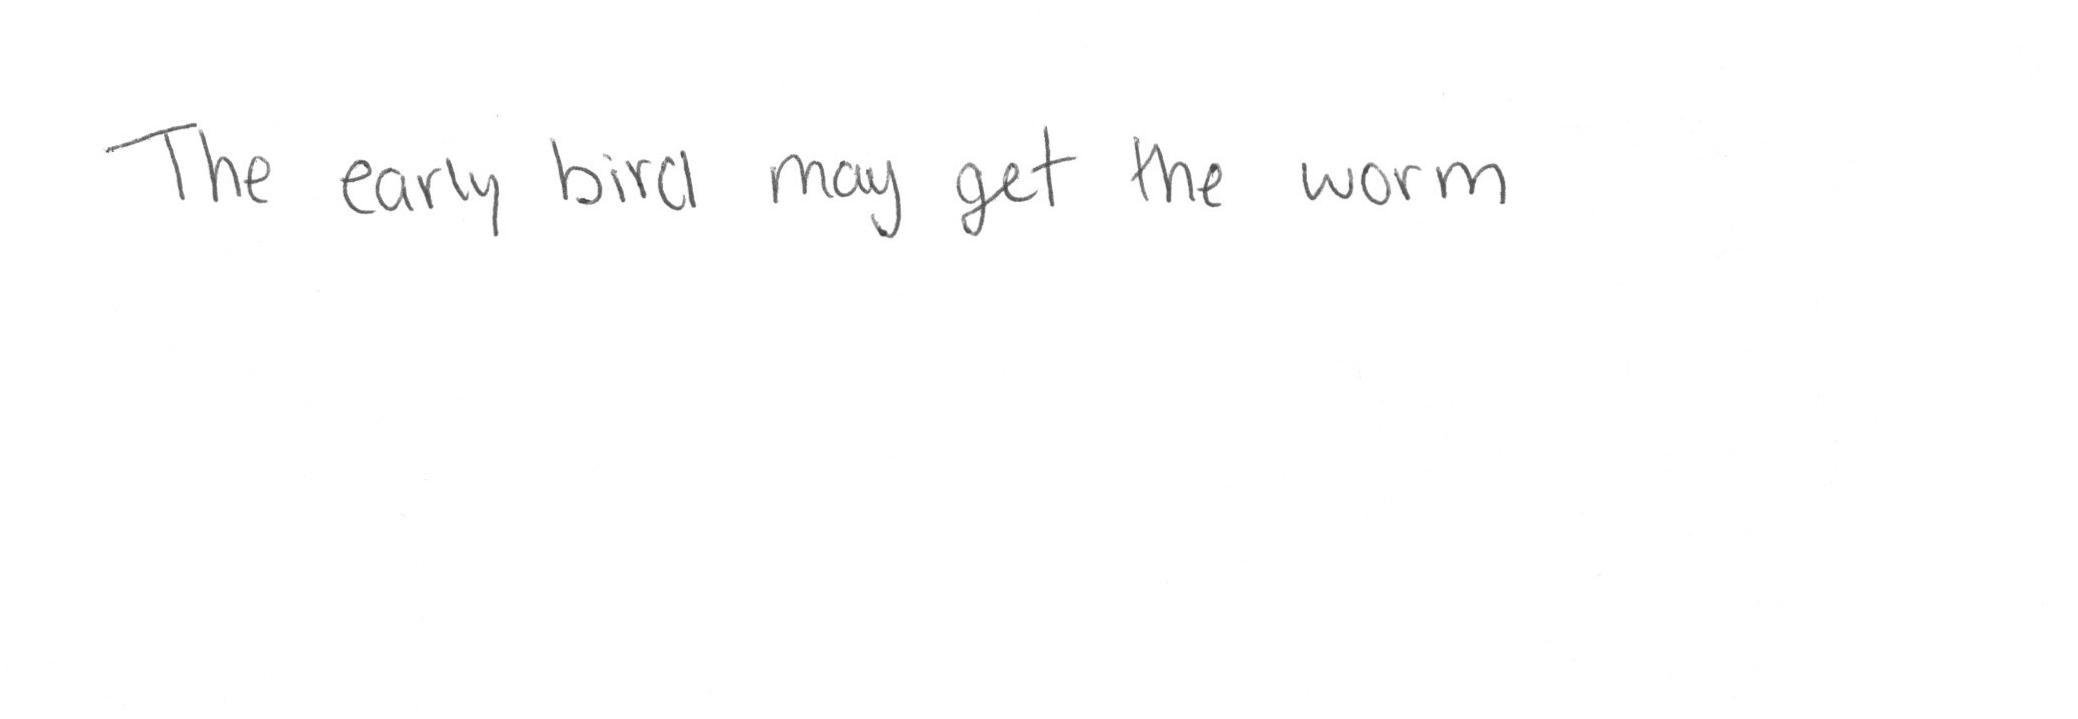 The early bird may get the worm